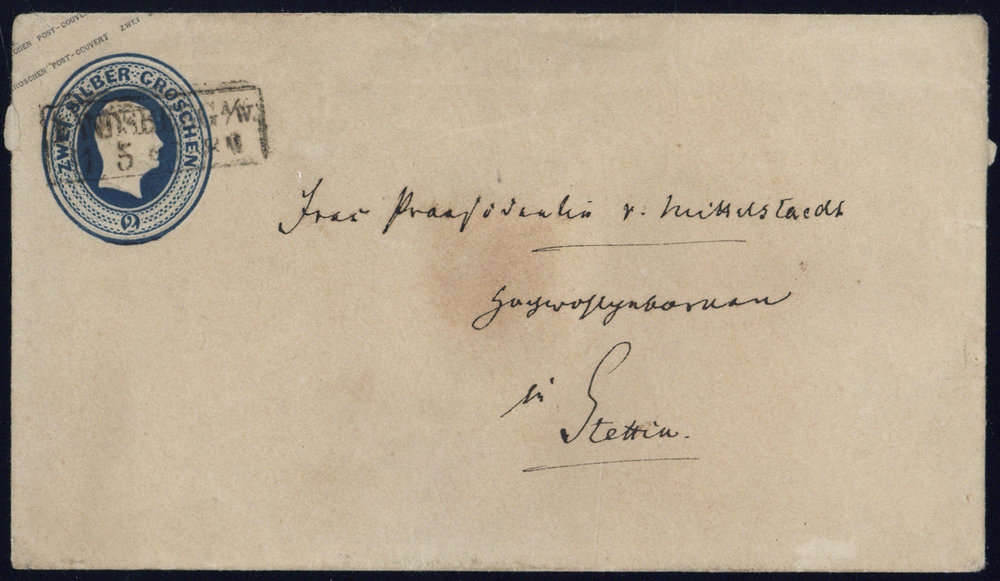 OSCHEN POST-COUVERT ZWEI
GROSCHEN POST-COUVERT
ZWEI SILBER GROSCHEN
2
A/W.
5
Frau Praesidentin v. Mittelstaedt
Hochwohlgeboren
in
Stettin.